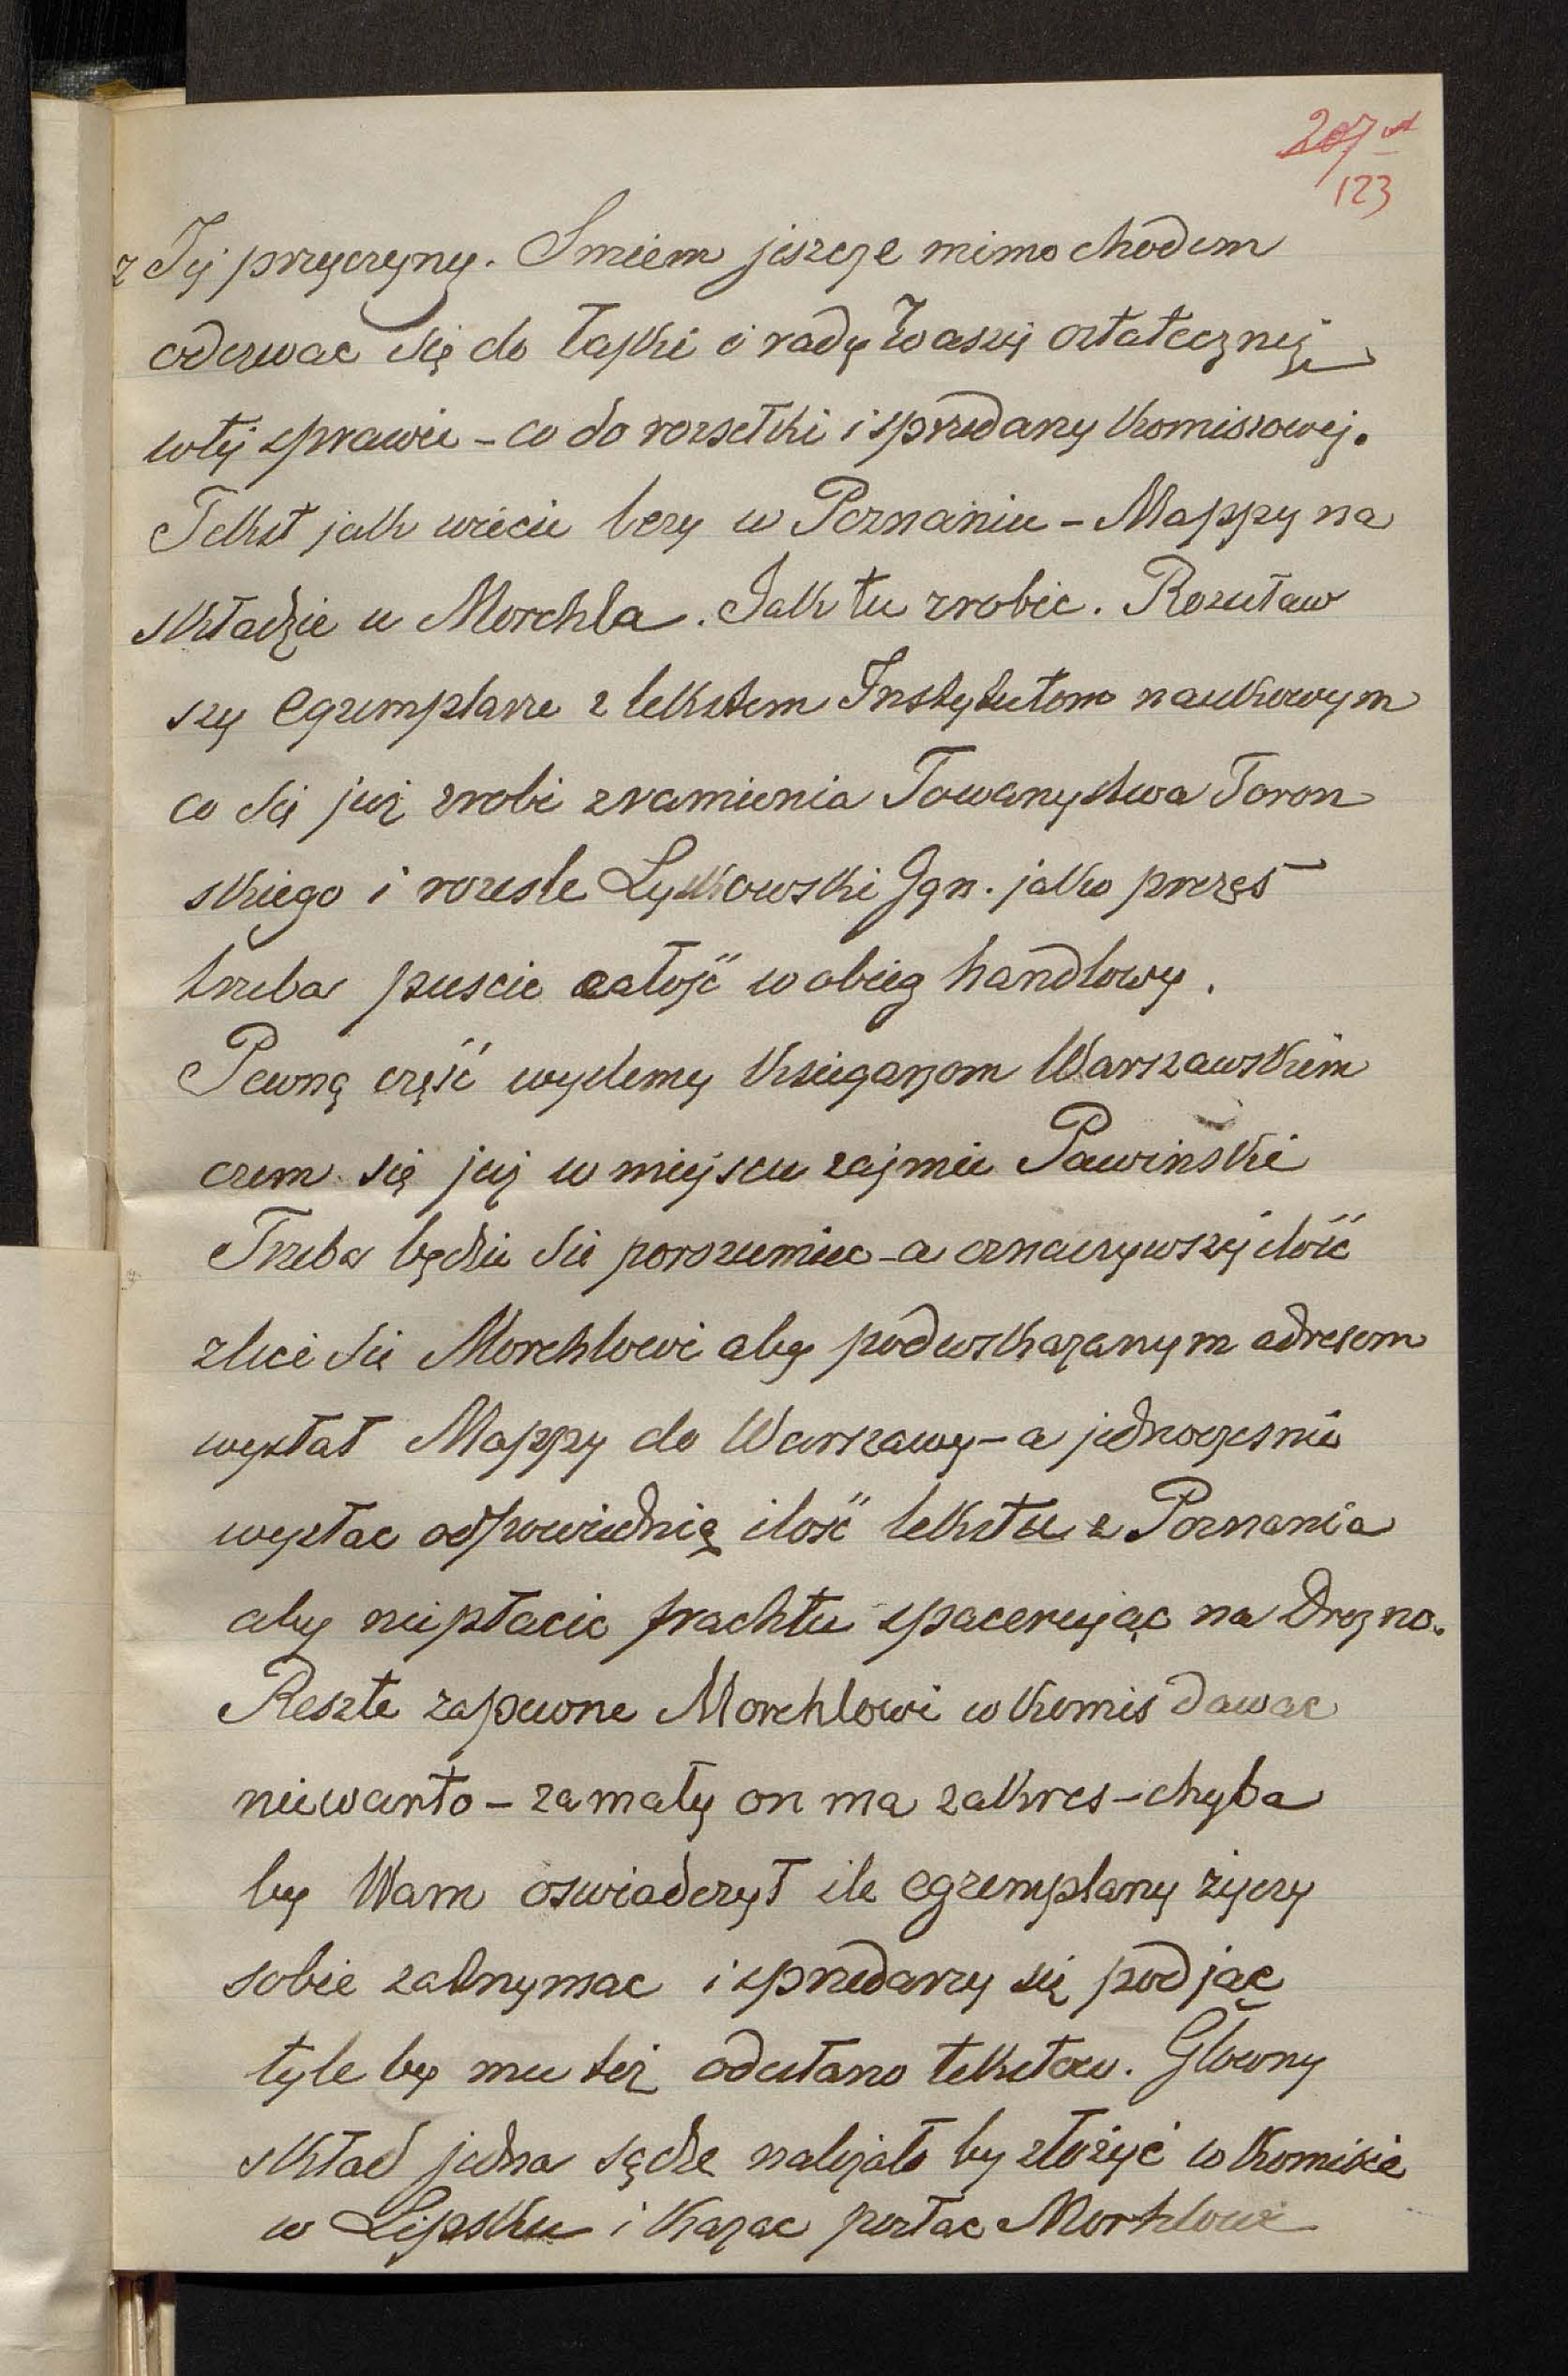 207 
123
z Tej przyczyny. Smiem jeszcze mimo chodem
odezwac się do Łaski i rady Waszej ostatecznej
wtej sprawie - co do rozsełki i sprzedaży Komisowej.
Tekst jak wiecie leży w Poznaniu - Mappy na
składzie u Morchla. Jak tu zrobic. Rozesław
szy egzemplarze z tekstem Instytutom naukowym
co się już zrobi zramienia Towarzystwa Toron
skiego i roześle Lyskowski Ign. jako prezes
trzeba puscic całość w obieg handlowy.
Pewną część wyslemy Księgarzom Warszawskim
czem się już w miejscu zajmie Pawinski
Trzeba będzie sie porozumiec - a oznaczywszy ilość
zleci sie Morchlowi aby podwskazanym adresom
wysłał Mappy do Warszawy - a jednoczesnie
wysłac odpowiednią ilość tekstu z Poznania
aby niepłacic frachtu spacerując na Drezno.
Reszte zapewne Morchlowi w Komis dawac
niewarto - zamały on ma zakres - chyba
by Wam oswiadczył ile egzemplarzy życzy
sobie zatrzymac i sprzedarzy się podjąc
tyle by mu też odesłano tekstow. Glowny
skład jedna sądze należało by złożyć w Komisie
w Lipsku i Kazac posłac Morhlowi